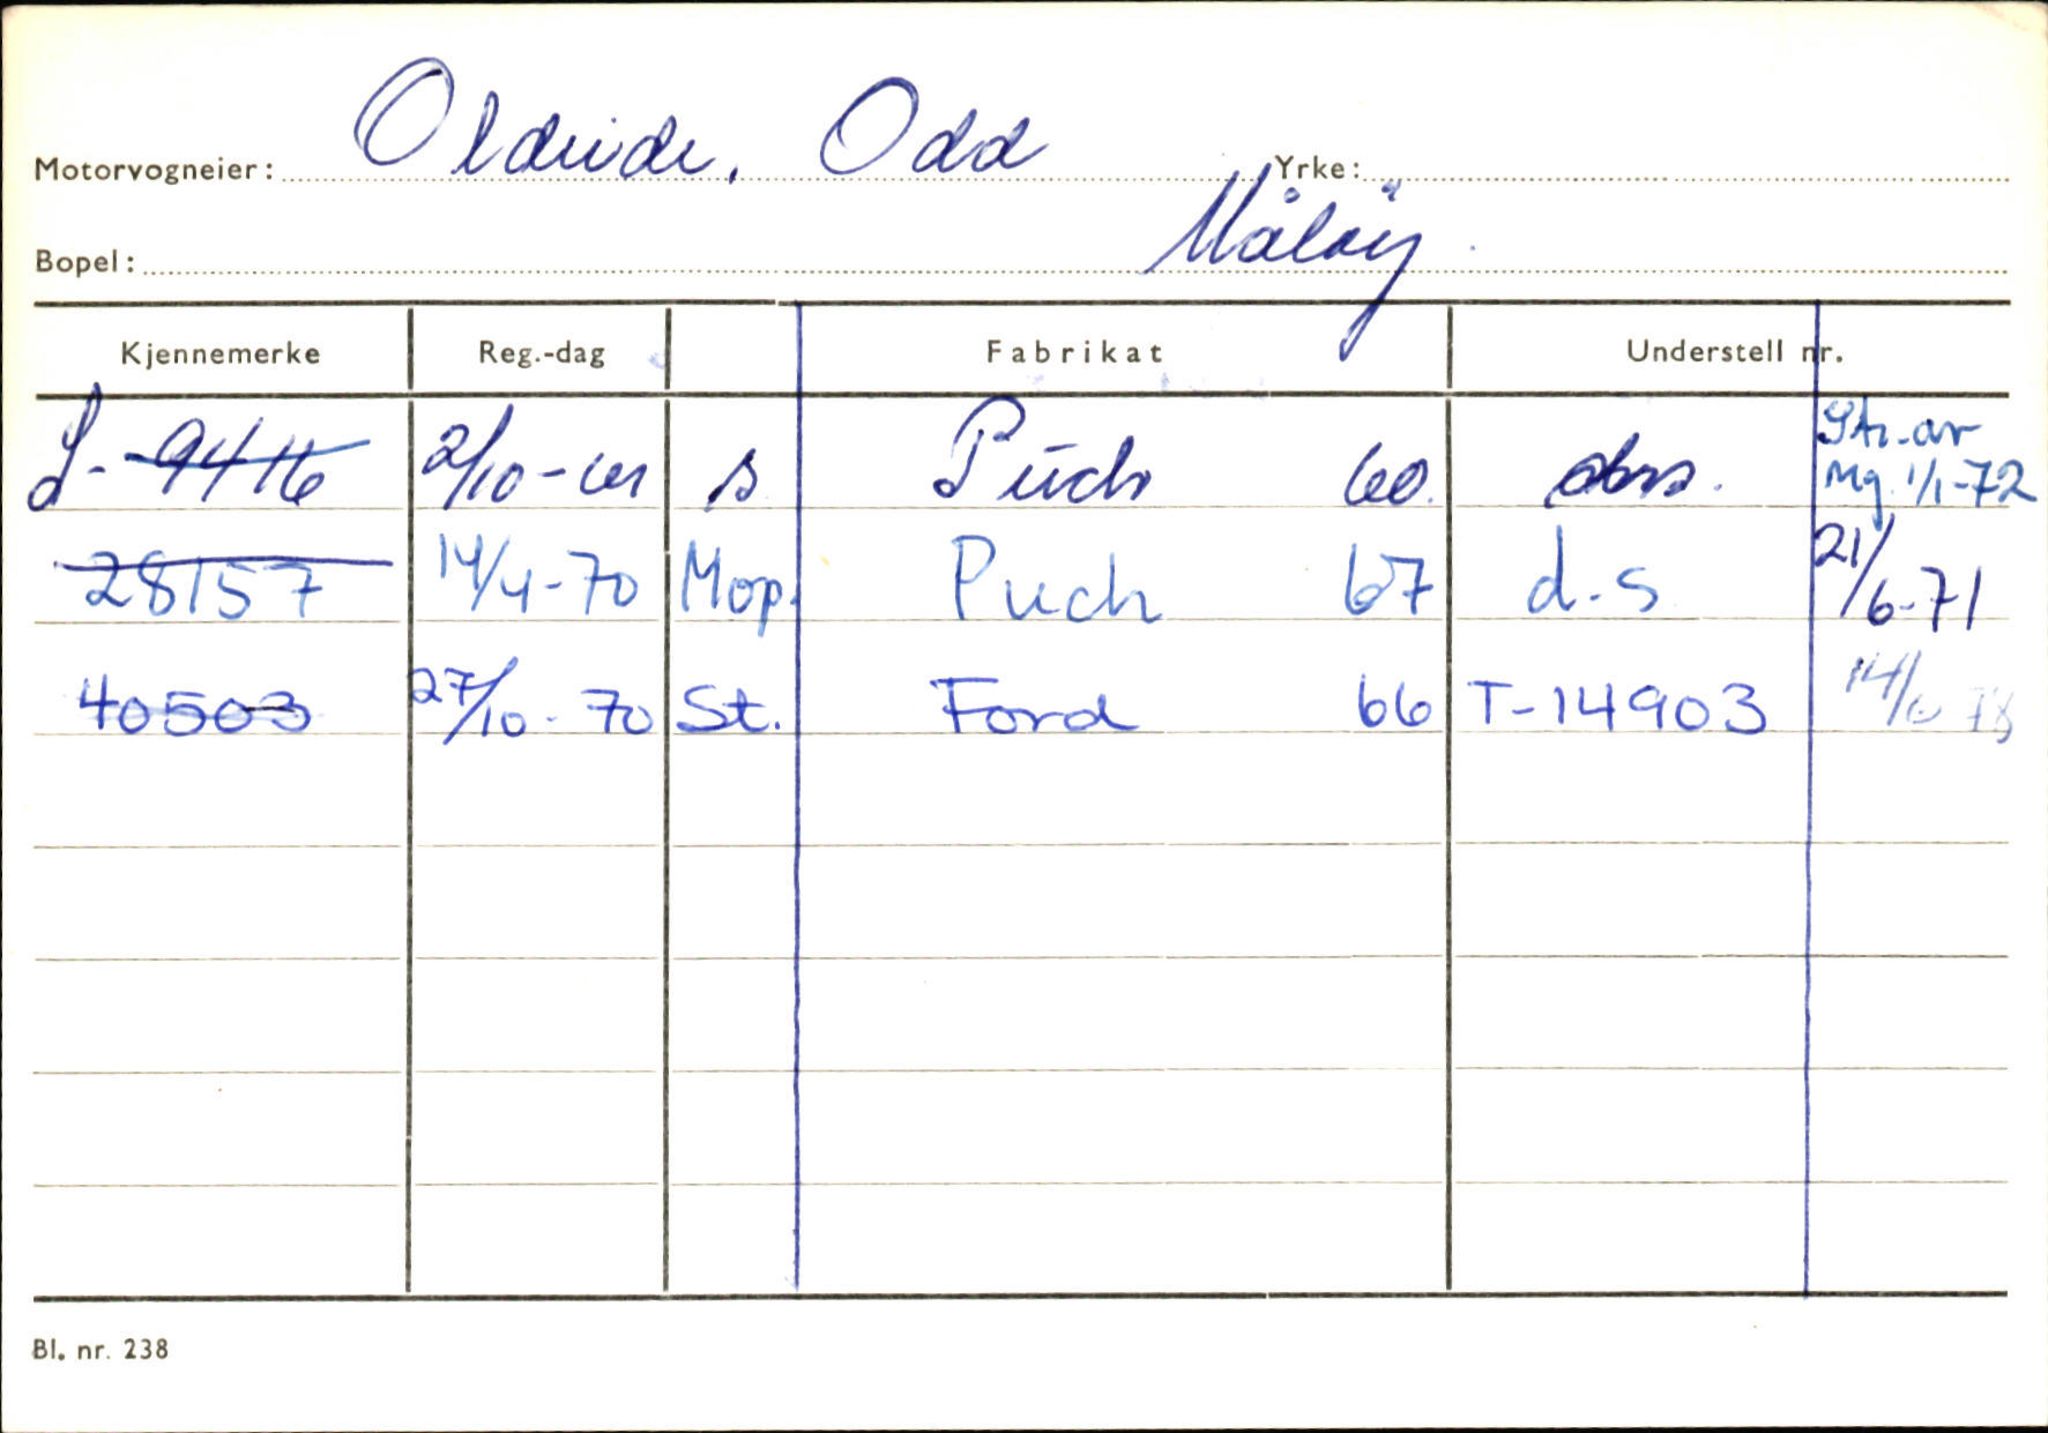 Motorvogneier: Oldeide, Odd Yrke:
Bopel: Måløy
Kjennemerke Reg.-dag Fabrikat Understell nr.
S- 9416 2/10-61 s Puch 60. dss. Str. av
Mg. 1/1-72
28157 14/4-70 Mop. Puch 67 d.s 21/6-71
40503 27/10-70 St. Ford 66 T-14903
Bl. nr. 238